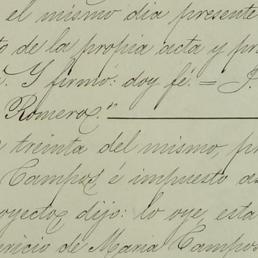 el mismo dia presente
to de la propia acta y pr
Y firmó: doy fé. = J.
Romero."
treinta del mismo, p
Campos é impuesto de
oyectos dijo: lo oye, esta
uricio de Maria Campos